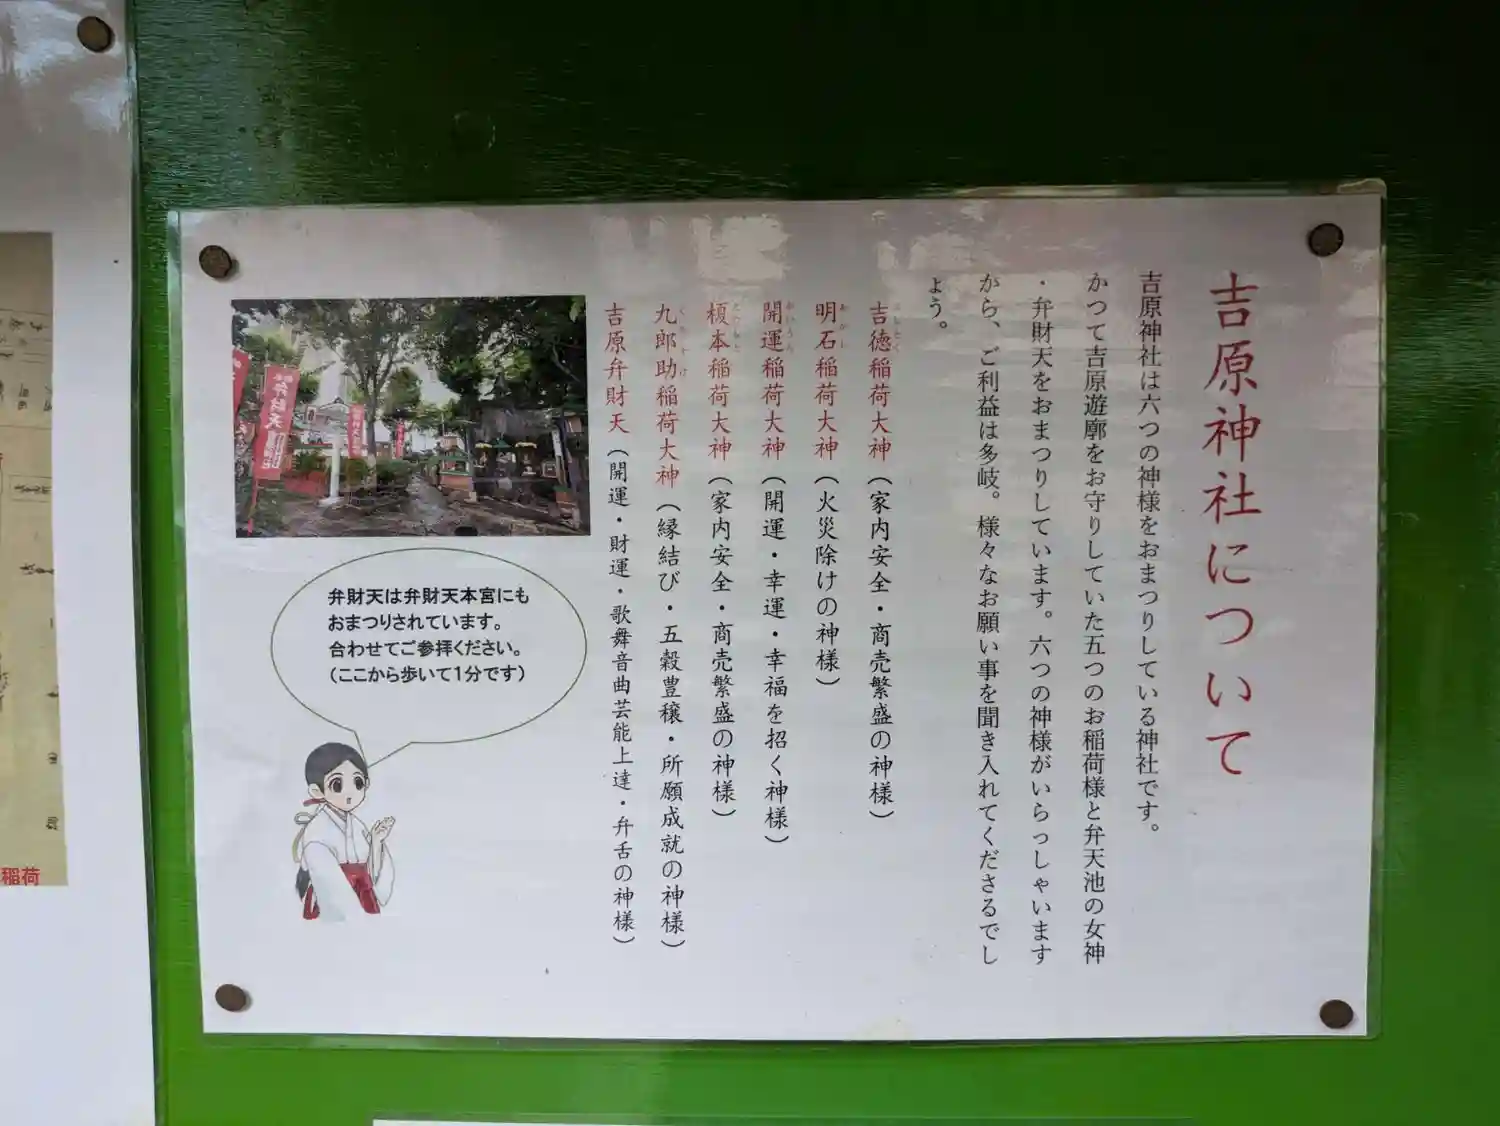 吉原神社について
吉原神社は六つの神様をおまつりしている神社です。
かつて吉原遊廓をお守りしていた五つのお稲荷様と弁天池の女神
・弁財天をおまつりしています。六つの神様がいらっしゃいます
から、ご利益は多岐。様々なお願い事を聞き入れてくださるでし
ょう。
吉徳稲荷大神（家内安全・商売繁盛の神様）
明石稲荷大神（火災除けの神様）
開運稲荷大神（開運・幸運・幸福を招く神様）
榎本稲荷大神（家内安全・商売繁盛の神様）
九郎助稲荷大神（縁結び・五穀豊穣・所願成就の神様）
吉原弁財天（開運・財運・歌舞音曲芸能上達・弁舌の神様）
弁財天
弁財天は弁財天本宮にも
おまつりされています。
合わせてご参拝ください。
（ここから歩いて1分です）
稲荷